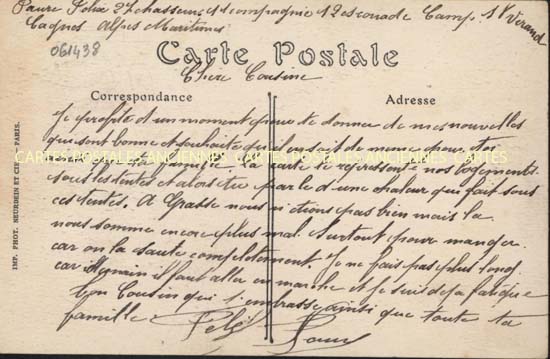 Faure Felix 27 chasseurs 1e compagnie 12 escouade Camp St Verand
Cagnes Alpes Maritimes
061438
Carte Postale
Chere Cousine
Correspondance
Adresse
Je profite d'un moment pour te donner de mes nouvelles
qui sont bonne et souhaite qu'il en soit de meme pour toi
famille la carte te represente nos logements
CARTES POSTALES ANCIENNES CARTES POSTALES ANCIENNES CARTES
sous les tentes et alors tu parle d'une chaleur qui fait sous
ces tentes. A Grasse nous etions pas bien mais la
nous somme encore plus mal surtout pour manger
car on la saute completement. Je ne fais pas plus long
car demain il faut aller en marche et je suis deja fatigue
ton Cousin qui t'embrasse ainsi que toute ta
famille Felix Faure
IMP. PHOT. NEURDEIN ET CIE. - PARIS.